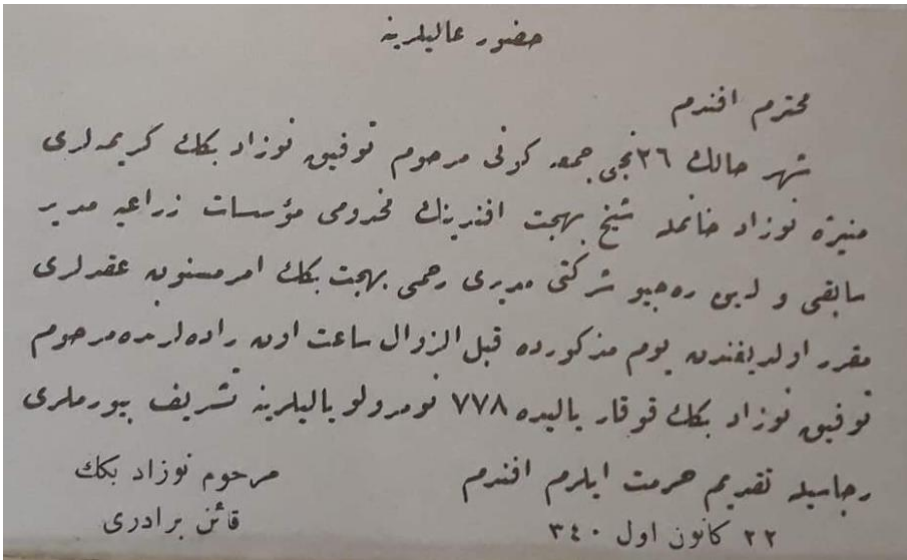 حضور عاليلرينه
محترم افندم
شهر حالك ٢٦نجى جمعه كونى مرحوم توفيق نوزاد بكك كريمه‌لرى
منيره نوزاد خانمله شيخ بهجت افندينك مخدومى مؤسسات زراعيه مدير
سابقى و شركتى مديرى رحمى بهجت بكك امر مسنون عقدلرى
مقرر اولديغندن يوم مذكورده قبل الزوال ساعت اون راده‌لرنده مرحوم
توفيق نوزاد بكك قوقار ياليده ٧٧٨ نومرولو ياليلرينه تشريف بيورملرى
رجاسيله تقديم حرمت ايلرم افندم
مرحوم نوزاد بكك
٢٢ كانون اول ٣٤٠
قائن برادرى